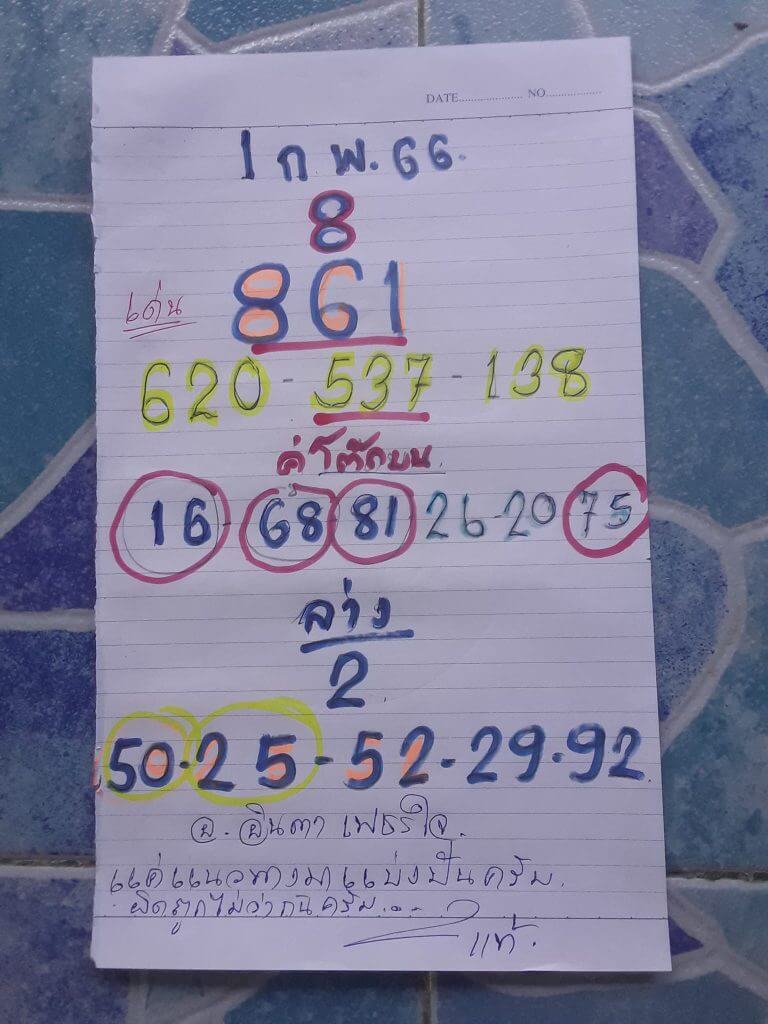 DATE..................... NO.................
1 ก พ. 66.
8
เด่น 861
620 - 537 - 138
คู่โต๊ดบน
16 - 68 81 26-20 75
ล่าง
2
50-25-52-29-92
อ. อินตา เพชรใจ.
แค่แนวทางมาแบ่งปันครับ.
ผิดถูกไม่ว่ากันครับ...
แท้.